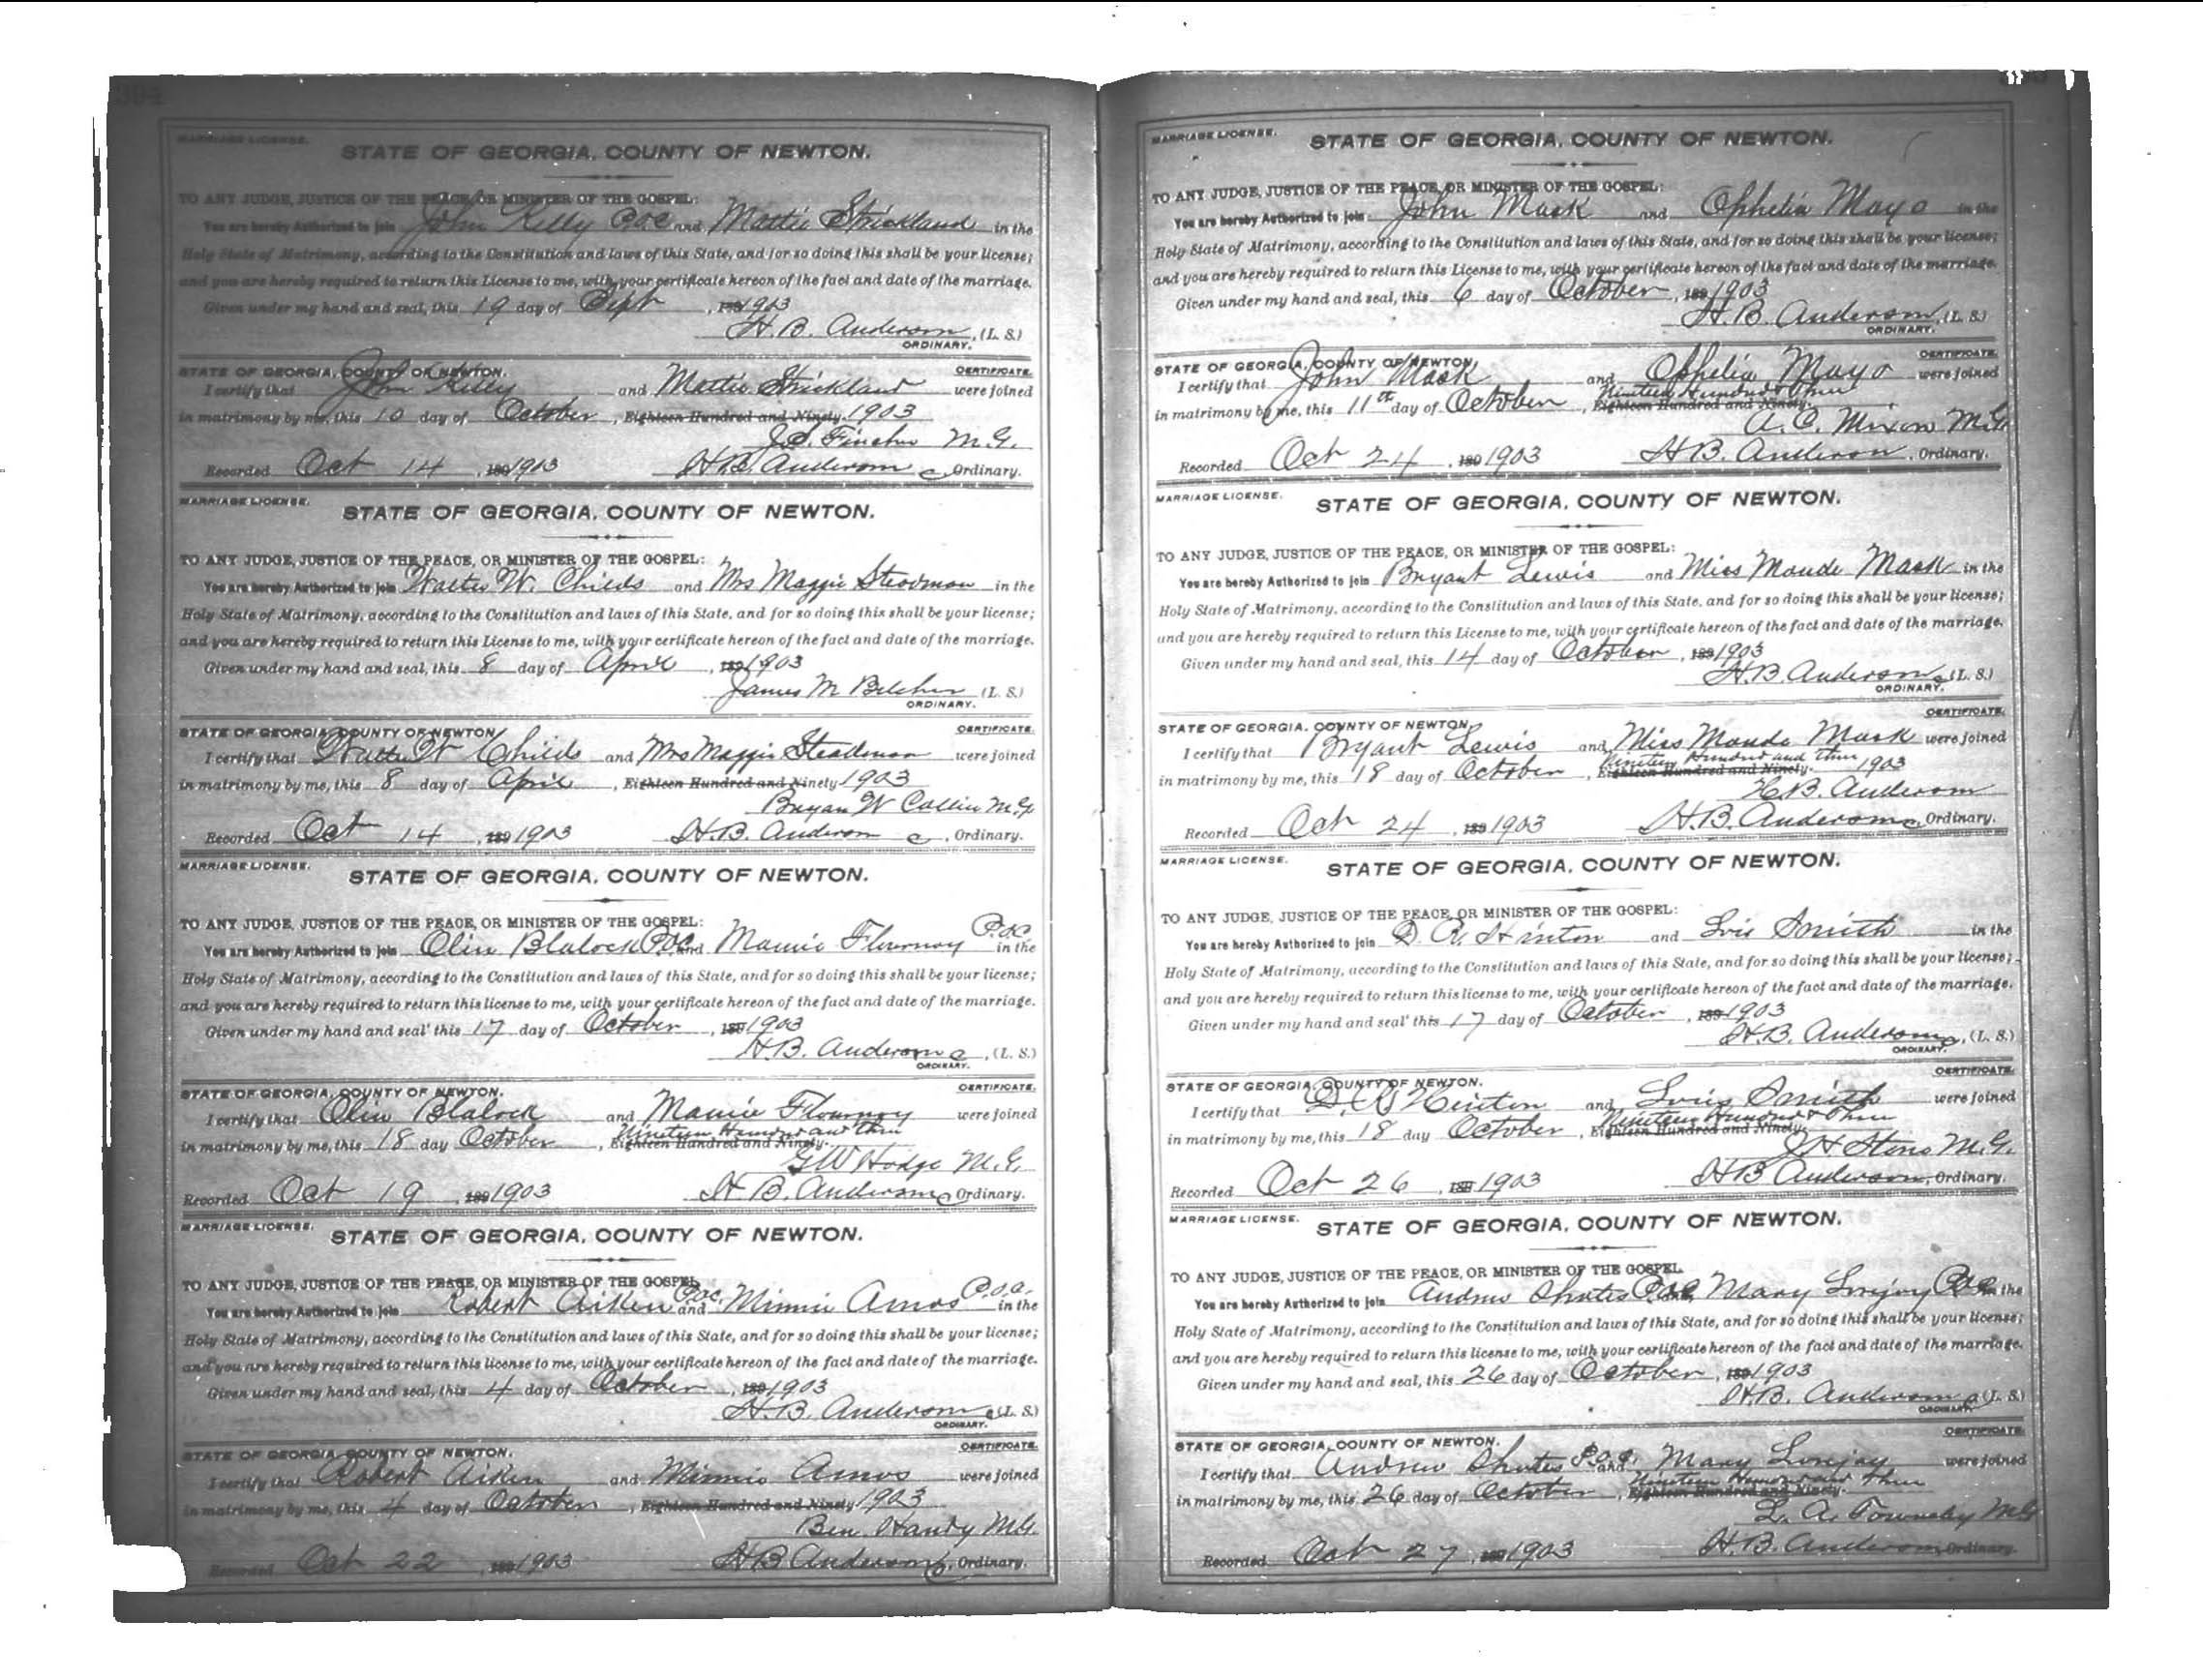 MARRIAGE LICENSE.
STATE OF GEORGIA, COUNTY OF NEWTON.
TO ANY JUDGE, JUSTICE OF THE PEACE, OR MINISTER OF THE GOSPEL:
You are hereby Authorized to join John Kelly P.O.C and Mattie Strickland in the
Holy State of Matrimony, according to the Constitution and laws of this State, and for so doing this shall be your license;
and you are hereby required to return this License to me, with your certificate hereon of the fact and date of the marriage.
Given under my hand and seal, this 19 day of Sept, 189 1903
H. B. Anderson, (L. S.)
ORDINARY.
STATE OF GEORGIA, COUNTY OF NEWTON. CERTIFICATE.
I certify that John Kelly and Mattie Strickland were joined
in matrimony by me, this 10 day of October, Eighteen Hundred and Ninety 1903
J.S. Fincher M.G.
Recorded Oct 14, 189 1903 H.B. Anderson, Ordinary.
MARRIAGE LICENSE.
STATE OF GEORGIA, COUNTY OF NEWTON.
TO ANY JUDGE, JUSTICE OF THE PEACE, OR MINISTER OF THE GOSPEL:
You are hereby Authorized to join Walter W. Childs and Mrs Maggie Steadman in the
Holy State of Matrimony, according to the Constitution and laws of this State, and for so doing this shall be your license;
and you are hereby required to return this License to me, with your certificate hereon of the fact and date of the marriage.
Given under my hand and seal, this 8 day of April, 189 1903
James M Belcher (L. S.)
ORDINARY.
STATE OF GEORGIA, COUNTY OF NEWTON CERTIFICATE.
I certify that Walter W Childs and Mrs Maggie Steadman were joined
in matrimony by me, this 8 day of April, Eighteen Hundred and Ninety 1903
Bryan W Collier M.G.
Recorded Oct 14, 189 1903 H.B. Anderson, Ordinary.
MARRIAGE LICENSE.
STATE OF GEORGIA, COUNTY OF NEWTON.
TO ANY JUDGE, JUSTICE OF THE PEACE, OR MINISTER OF THE GOSPEL:
You are hereby Authorized to join Olin Blalock P.O.C and Mamie Flournoy P.O.C in the
Holy State of Matrimony, according to the Constitution and laws of this State, and for so doing this shall be your license;
and you are hereby required to return this license to me, with your certificate hereon of the fact and date of the marriage.
Given under my hand and seal' this 17 day of October, 189 1903
H.B. Anderson, (L. S.)
ORDINARY.
STATE OF GEORGIA, COUNTY OF NEWTON. CERTIFICATE.
I certify that Olin Blalock and Mamie Flournoy were joined
in matrimony by me, this 18 day October, Eighteen Hundred and Ninety. Nineteen Hundred and Three
G W Hodge M.G.
Recorded Oct 19, 189 1903 H. B. Anderson Ordinary.
MARRIAGE LICENSE.
STATE OF GEORGIA, COUNTY OF NEWTON.
TO ANY JUDGE, JUSTICE OF THE PEACE, OR MINISTER OF THE GOSPEL
You are hereby Authorized to join Robert Aiken P.O.C. and Minnie Amos P.O.C. in the
Holy State of Matrimony, according to the Constitution and laws of this State, and for so doing this shall be your license;
and you are hereby required to return this license to me, with your certificate hereon of the fact and date of the marriage.
Given under my hand and seal, this 4 day of October, 189 1903
H.B. Anderson (L. S.)
ORDINARY.
STATE OF GEORGIA, COUNTY OF NEWTON. CERTIFICATE.
I certify that Robert Aiken and Minnie Amos were joined
in matrimony by me, this 4 day of October, Eighteen Hundred and Ninety 1903
Ben Handy M.G.
Recorded Oct 22, 189 1903 H B Anderson, Ordinary.
MARRIAGE LICENSE.
STATE OF GEORGIA, COUNTY OF NEWTON.
TO ANY JUDGE, JUSTICE OF THE PEACE, OR MINISTER OF THE GOSPEL:
You are hereby Authorized to join John Mack and Ophelia Mayo in the
Holy State of Matrimony, according to the Constitution and laws of this State, and for so doing this shall be your license;
and you are hereby required to return this License to me, with your certificate hereon of the fact and date of the marriage.
Given under my hand and seal, this 6 day of October, 189 1903
H. B. Anderson, (L. S.)
ORDINARY.
STATE OF GEORGIA, COUNTY OF NEWTON, CERTIFICATE.
I certify that John Mack and Ophelia Mayo were joined
in matrimony by me, this 11th day of October, Eighteen Hundred and Ninety. Nineteen Hundred & Three
A. C. Mixon M.G.
Recorded Oct 24, 189 1903 H B. Anderson, Ordinary.
MARRIAGE LICENSE.
STATE OF GEORGIA, COUNTY OF NEWTON.
TO ANY JUDGE, JUSTICE OF THE PEACE, OR MINISTER OF THE GOSPEL:
You are hereby Authorized to join Bryant Lewis and Miss Maude Mack in the
Holy State of Matrimony, according to the Constitution and laws of this State, and for so doing this shall be your license;
and you are hereby required to return this License to me, with your certificate hereon of the fact and date of the marriage.
Given under my hand and seal, this 14 day of October, 189 1903
H.B. Anderson (L. S.)
ORDINARY.
CERTIFICATE.
STATE OF GEORGIA, COUNTY OF NEWTON,
I certify that Bryant Lewis and Miss Maude Mack were joined
in matrimony by me, this 18 day of October, Eighteen Hundred and Ninety. Nineteen Hundred and Three 1903
H.B. Anderson
Recorded Oct 24, 189 1903 H.B. Anderson Ordinary.
MARRIAGE LICENSE.
STATE OF GEORGIA, COUNTY OF NEWTON.
TO ANY JUDGE, JUSTICE OF THE PEACE, OR MINISTER OF THE GOSPEL:
You are hereby Authorized to join D. R. Hinton and Lois Smith in the
Holy State of Matrimony, according to the Constitution and laws of this State, and for so doing this shall be your license;
and you are hereby required to return this license to me, with your certificate hereon of the fact and date of the marriage.
Given under my hand and seal' this 17 day of October, 189 1903
H.B. Anderson, (L. S.)
ORDINARY.
CERTIFICATE.
STATE OF GEORGIA, COUNTY OF NEWTON.
I certify that D. R. Hinton and Lois Smith were joined
in matrimony by me, this 18 day October, Eighteen Hundred and Ninety. Nineteen Hundred & Three
J H Stone M.G.
Recorded Oct 26, 189 1903 H B Anderson, Ordinary.
MARRIAGE LICENSE.
STATE OF GEORGIA, COUNTY OF NEWTON.
TO ANY JUDGE, JUSTICE OF THE PEACE, OR MINISTER OF THE GOSPEL
You are hereby Authorized to join Andrew Shutes P.O.C. and Mary Lovejoy P.O.C. in the
Holy State of Matrimony, according to the Constitution and laws of this State, and for so doing this shall be your license;
and you are hereby required to return this license to me, with your certificate hereon of the fact and date of the marriage.
Given under my hand and seal, this 26 day of October, 189 1903
H.B. Anderson (L. S.)
ORDINARY
CERTIFICATE.
STATE OF GEORGIA, COUNTY OF NEWTON.
I certify that Andrew Shutes P.O.C. and Mary Lovejoy were joined
in matrimony by me, this 26 day of October, Eighteen Hundred and Ninety. Nineteen Hundred and Three
L. A. Townsley M.G.
Recorded Oct 27, 189 1903 H.B. Anderson, Ordinary.